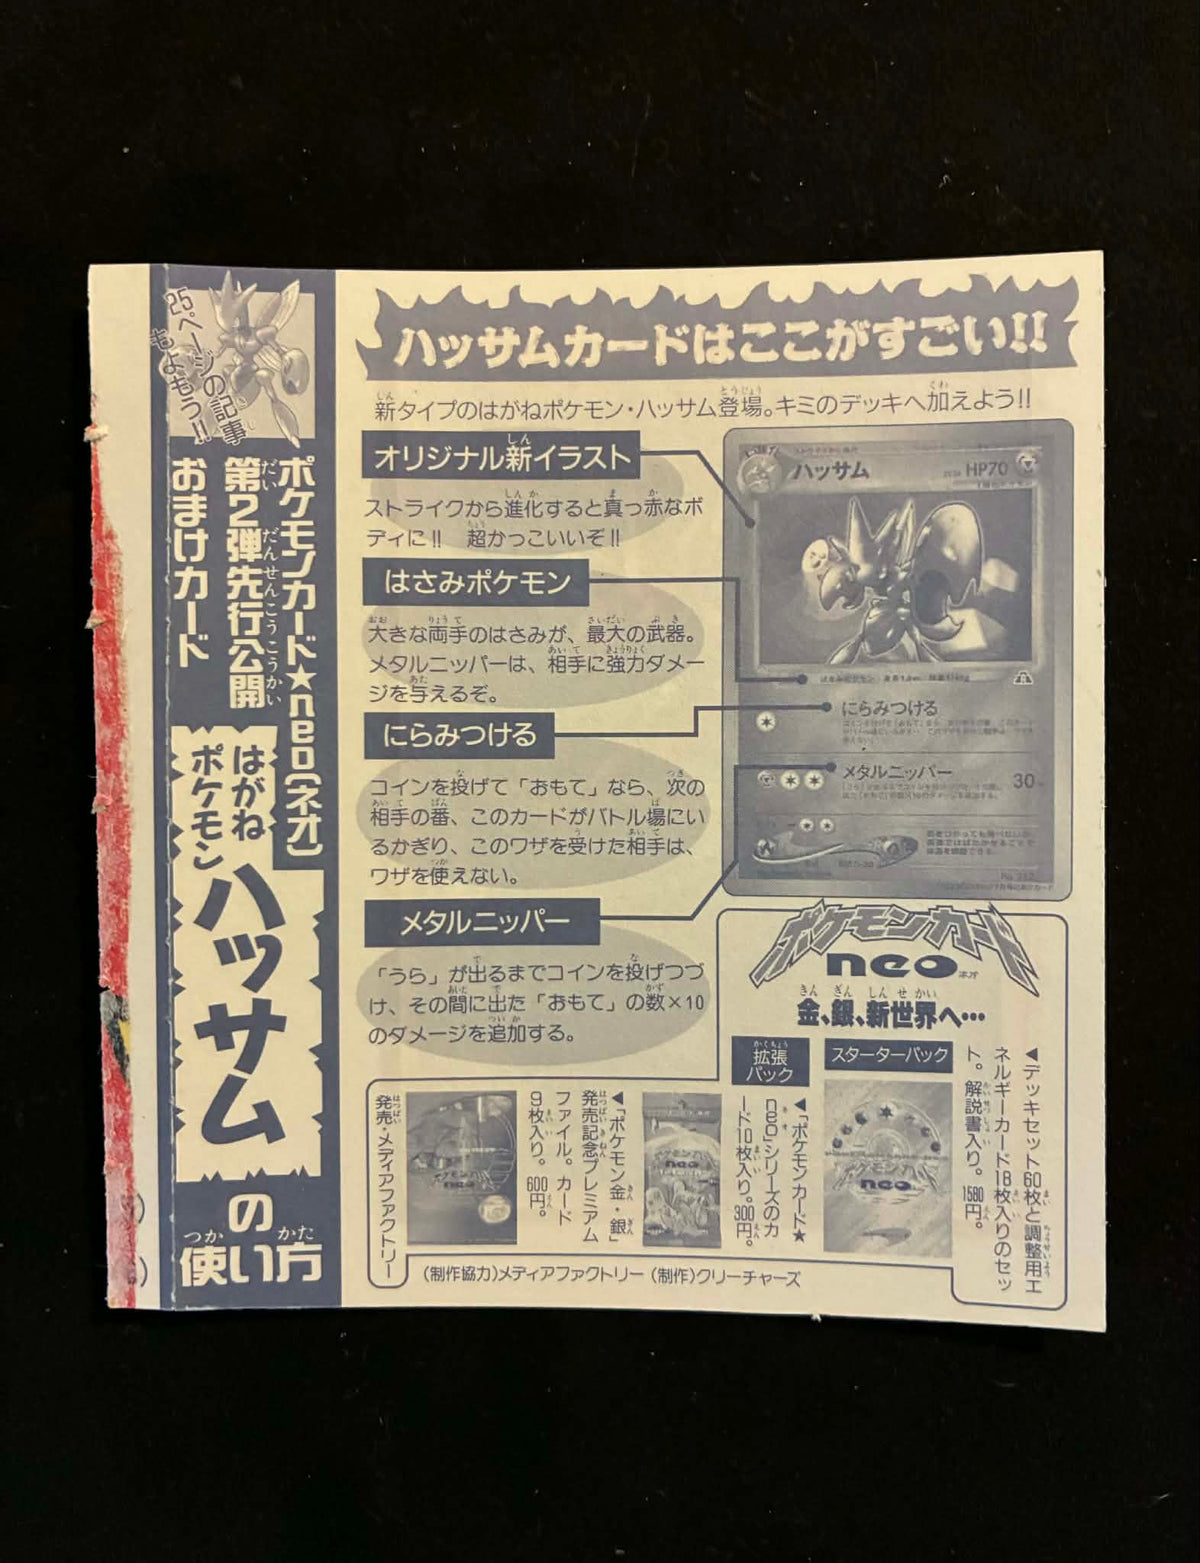 25ページの記事
もよもう!!
ポケモンカード★neo〔ネオ〕
第2弾先行公開
おまけカード
はがね
ポケモン
ハッサム
の
使い方
ハッサムカードはここがすごい!!
新タイプのはがねポケモン・ハッサム登場。キミのデッキへ加えよう!!
オリジナル新イラスト
ストライクから進化すると真っ赤なボ
ディに!! 超かっこいいぞ!!
はさみポケモン
大きな両手のはさみが、最大の武器。
メタルニッパーは、相手に強力ダメー
ジを与えるぞ。
にらみつける
コインを投げて「おもて」なら、次の
相手の番、このカードがバトル場にい
るかぎり、このワザを受けた相手は、
ワザを使えない。
メタルニッパー
「うら」が出るまでコインを投げつづ
け、その間に出た「おもて」の数×10
のダメージを追加する。
ハッサム
HP70
はさみポケモン
にらみつける
メタルニッパー
30
ポケモンカード
neo
ネオ
金、銀、新世界へ…
スターターパック
◀デッキセット60枚と調整用エ
ネルギーカード18枚入りのセッ
ト。解説書入り。1580円。
拡張
パック
◀「ポケモンカード★
neo」シリーズのカ
ード10枚入り。300円。
◀「ポケモン金・銀」
発売記念プレミアム
ファイル。カード
9枚入り。600円。
発売・メディアファクトリー
(制作協力)メディアファクトリー (制作)クリーチャーズ